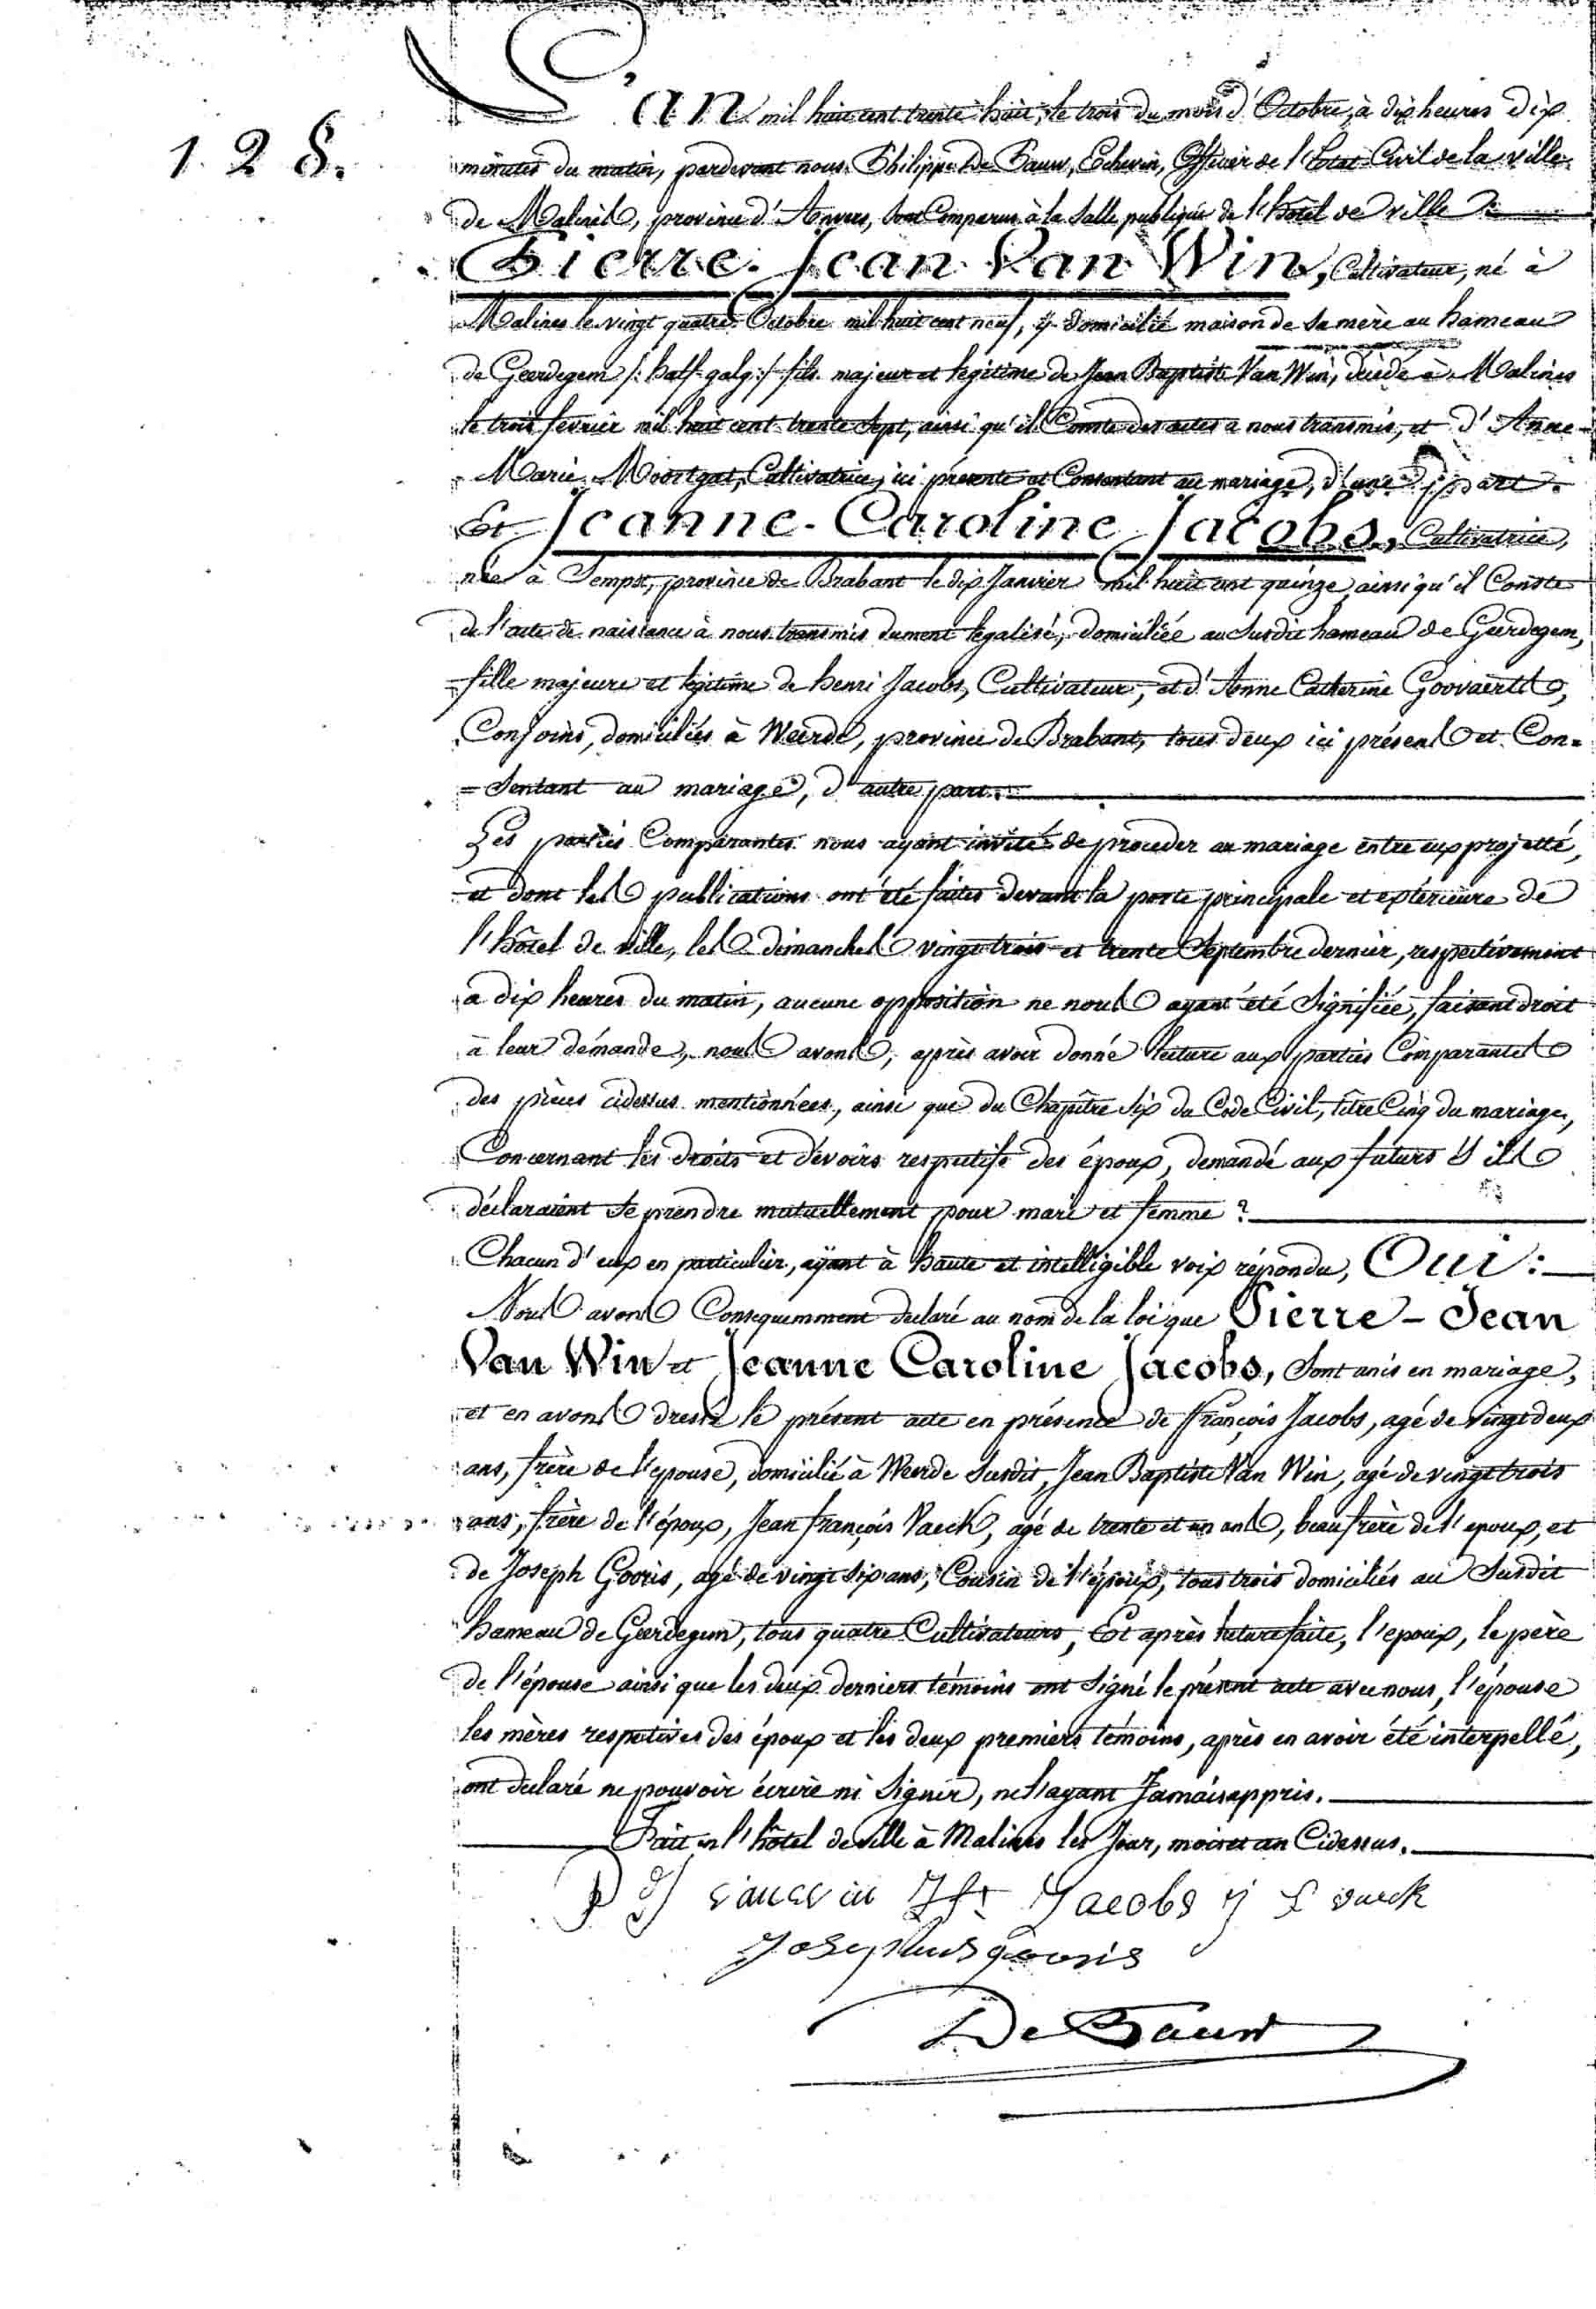 128.
L'an mil huit cent trente huit, le trois du mois d'Octobre, à dix heures dix
minutes du matin, pardevant nous Philippe De Pauw, Echevin, Officier de l'Etat Civil de la ville
de Malines, province d'Anvers, sont Comparus à la Salle publique de l'hôtel de ville :
Pierre-Jean Van Win, Cultivateur, né à
Malines le vingt quatre Octobre mil huit cent neuf, y domicilié maison de sa mère au hameau
de Geerdegem /: half-galg :/ fils majeur et légitime de Jean Baptiste Van Win, décédé à Malines
le trois fevrier mil huit cent trente sept, ainsi qu'il Conste des actes a nous transmis, et d'Anne-
Marie Moortgat, Cultivatrice, ici présente et Consentant au mariage, d'une part.
Et Jeanne-Caroline Jacobs, Cultivatrice,
née à Sempst, province de Brabant le dix Janvier mil huit cent quinze, ainsi qu'il Conste
de l'acte de naissance à nous transmis dument légalisé, domiciliée au susdit hameau de Geerdegem,
fille majeure et légitime de henri Jacobs, Cultivateur, et d'Anne Catherine Goovaerts,
Conjoins, domiciliés à Weerde, province de Brabant, tous deux ici présens et Con=
=sentant au mariage, d'autre part.
Les parties Comparantes nous ayant invités de proceder au mariage entre eux projetté,
et dont les publications ont été faites devant la porte principale et extérieure de
l'hôtel de ville, les dimanches vingt trois et trente Septembre dernier, respectivement
a dix heures du matin, aucune opposition ne nous ayant été Signifiée, faisant droit
à leur démande, nous avons, après avoir donné lecture aux parties Comparantes
des pièces cidessus mentionnées, ainsi que du Chapître Six du Code Civil, titre Cinq du mariage,
Concernant les droits et dévoirs respectifs des époux, demandé aux futurs s'ils
déclaraient se prendre mutuellement pour mari et femme ?
Chacun d'eux en particulier, ayant à haute et intelligible voix répondu, Oui :
Nous avons Consequemment declaré au nom de la loi que Pierre-Jean
Van Win et Jeanne Caroline Jacobs, sont unis en mariage,
et en avons dressé le présent acte en présence de françois Jacobs, agé de vingt deux
ans, frère de l'epouse, domicilié à Weerde susdit, Jean Baptiste Van Win, agé de vingt trois
ans, frère de l'époux, Jean françois Vaeck, agé de trente et un ans, beaufrère de l'epoux, et
de Joseph Gooris, agé de vingt six ans, Cousin de l'époux, tous trois domiciliés au Susdit
hameau de Geerdegem, tous quatre Cultivateurs, Et après lecture faite, l'epoux, le père
de l'épouse ainsi que les deux derniers témoins ont signé le présent acte avec nous, l'épouse
les mères respectives des époux et les deux premiers témoins, après en avoir été interpellé,
ont declaré ne pouvoir écrire ni signer, ne l'ayant Jamais appris.
Fait en l'hôtel de ville à Malines les Jour, mois et an Cidessus.
Jacobs j f vaeck
Josephus gooris
De Pauw